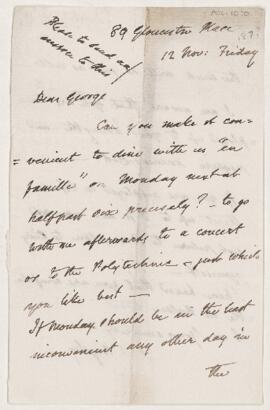 Please to send any
answer to this
89 Gloucester Place
12 Nov: Friday
Dear George
Can you make it con-
=venient to dine with us "en
famille" on Monday next at
half past six precisely? - to go
with me afterwards to a concert
or to the Polytechnic - just which
you like best -
If Monday should be in the least
inconvenient any other day in
the